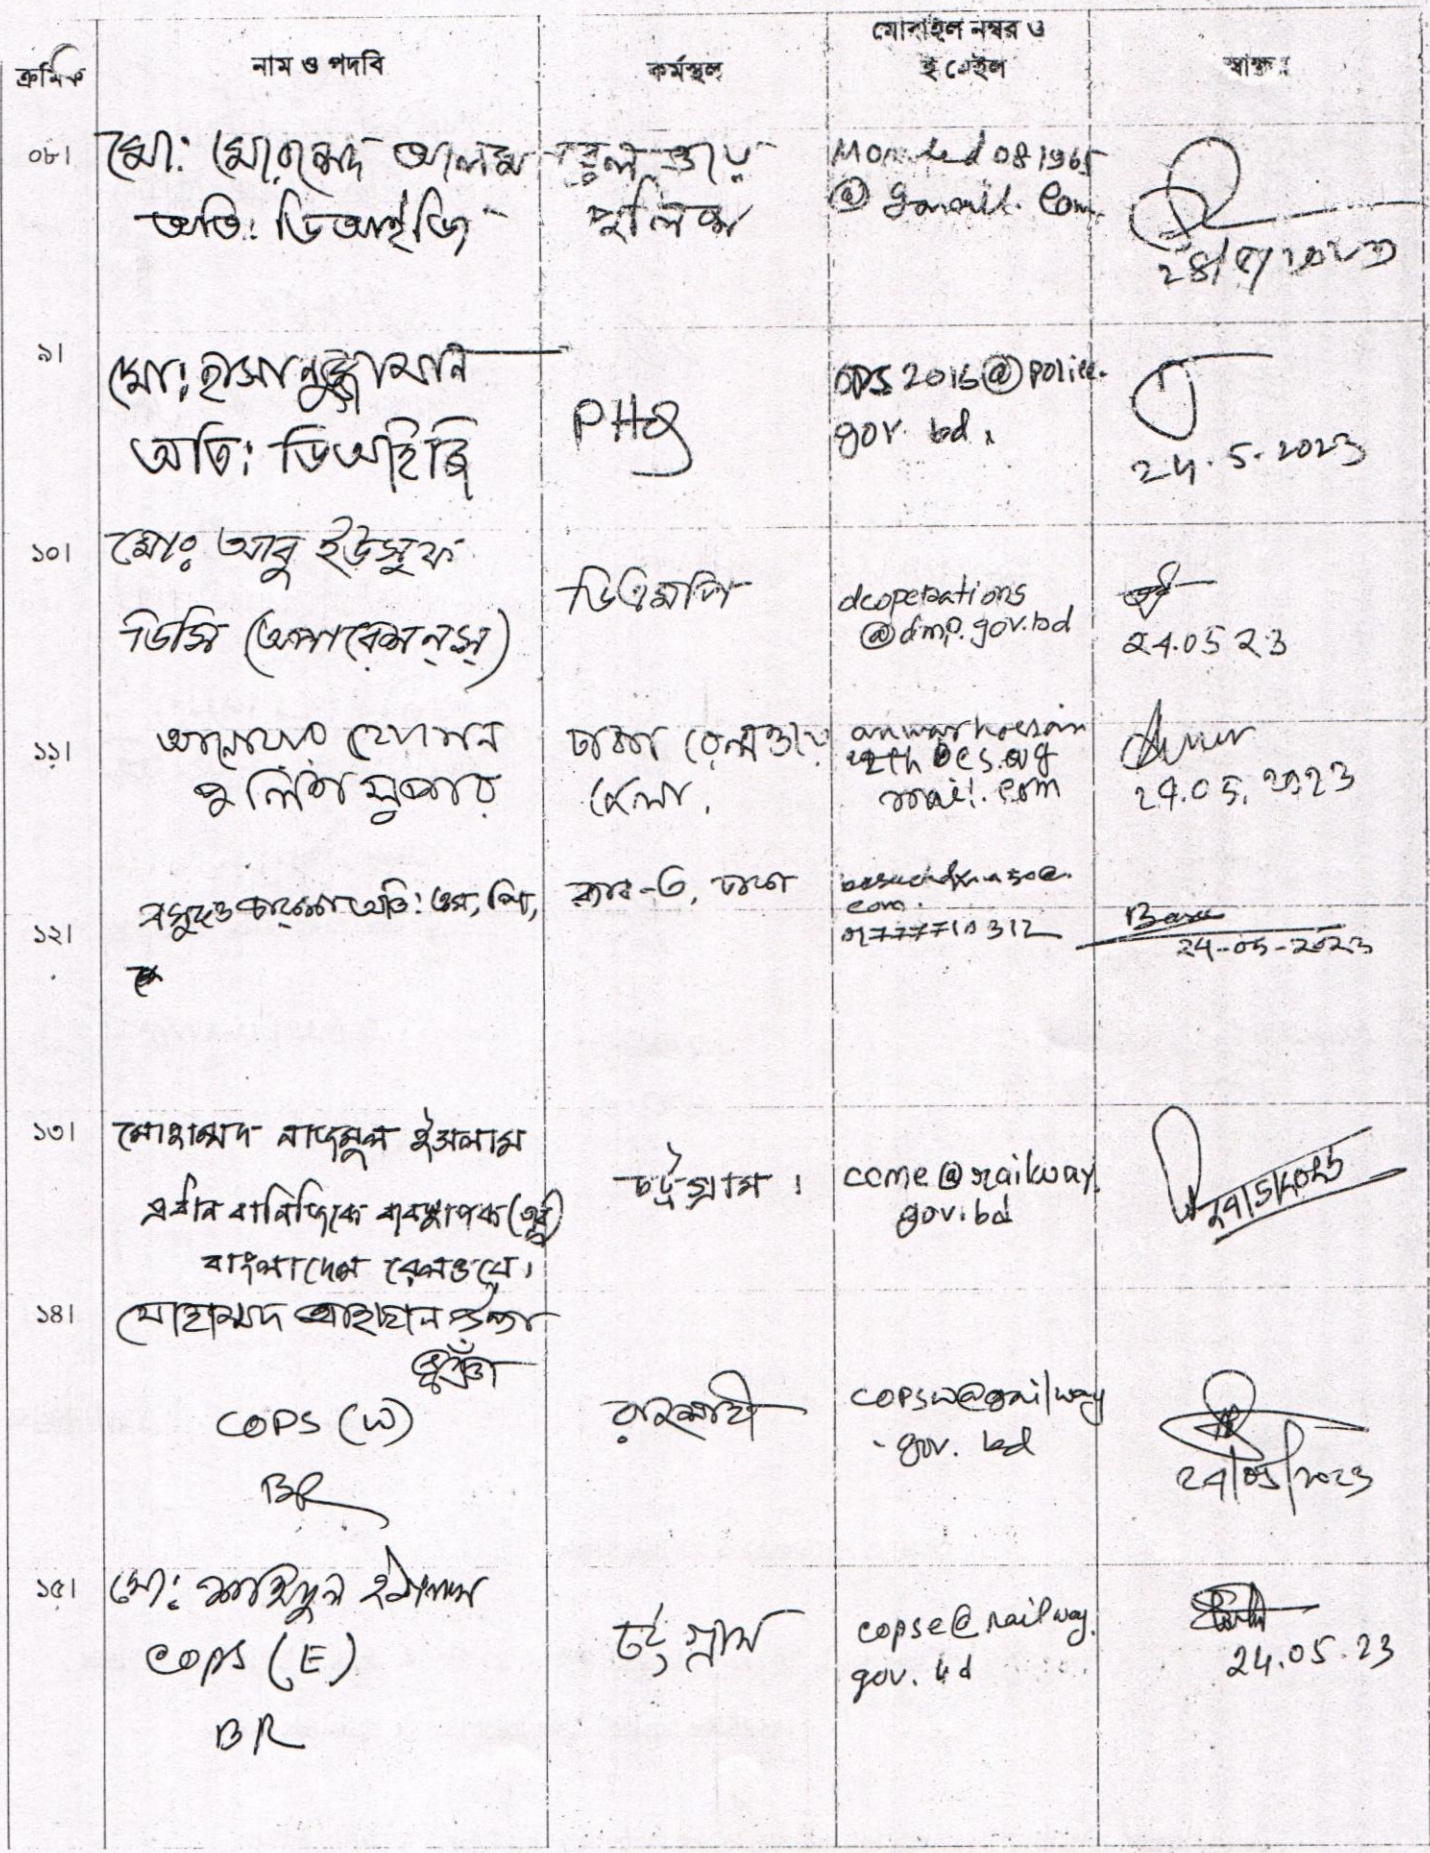 ক্রমিক
নাম ও পদবি
কর্মস্থল
মোবাইল নম্বর ও
ই মেইল
স্বাক্ষর
০৮।
মো: মোর্শেদ আলম
অতি: ডিআইজি
রেলওয়ে
পুলিশ
Morshed 08 1965
@ gmail. com.
২৪/৫/২০২৩
৯।
মো: হাসানুজ্জামান
অতি: ডিআইজি
PHQ
ops 2016@police.
gov. bd.
24.5.2023
১০।
মোঃ আবু ইউসুফ
ডিসি (অপারেশন্স্)
ডিএমপি
dcoperations
@dmp.gov.bd
24.05 23
১১।
আনোয়ার হোসেন
পুলিশ সুপার
ঢাকা রেলওয়ে
জেলা,
anwar hossain
mail. com
24.05.2023
১২।
অতি: এস, পি,
র‍্যাব-৩, ঢাকা
com.
01777710312
24-05-2023
১৩।
মোহাম্মদ নাজমুল ইসলাম
প্রধান বানিজ্যিক ব্যবস্থাপক (পূর্ব)
বাংলাদেশ রেলওয়ে।
চট্টগ্রাম।
ccme@railway.
gov.bd
১৪।
মোহাম্মদ আহছান উল্লা
ভূঞা
COPS (W)
BR
রাজশাহী
copsw@railway
.gov. bd
24/05/2023
১৫।
মো: শহিদুল ইসলাম
COPS (E)
BR
চট্টগ্রাম
copse@railway.
gov. bd
24.05.23